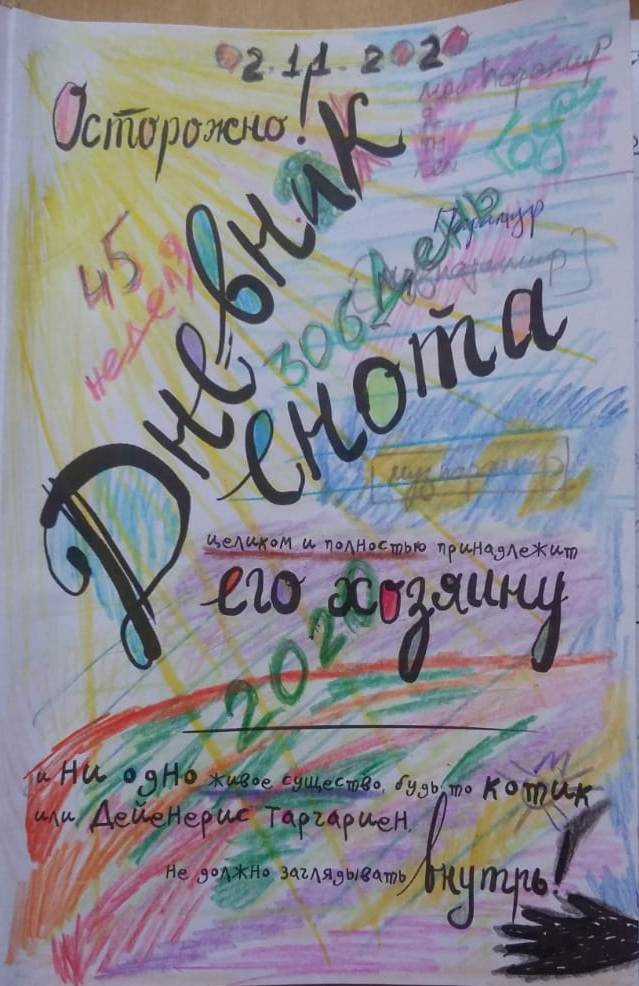 02.11.2020
Осторожно!
45
неделя
306 День
Дневник
енота
целиком и полностью принадлежит
его хозяину
2020
и ни одно живое существо, будь то котик
или Дейенерис Таргариен,
не должно заглядывать внутрь!